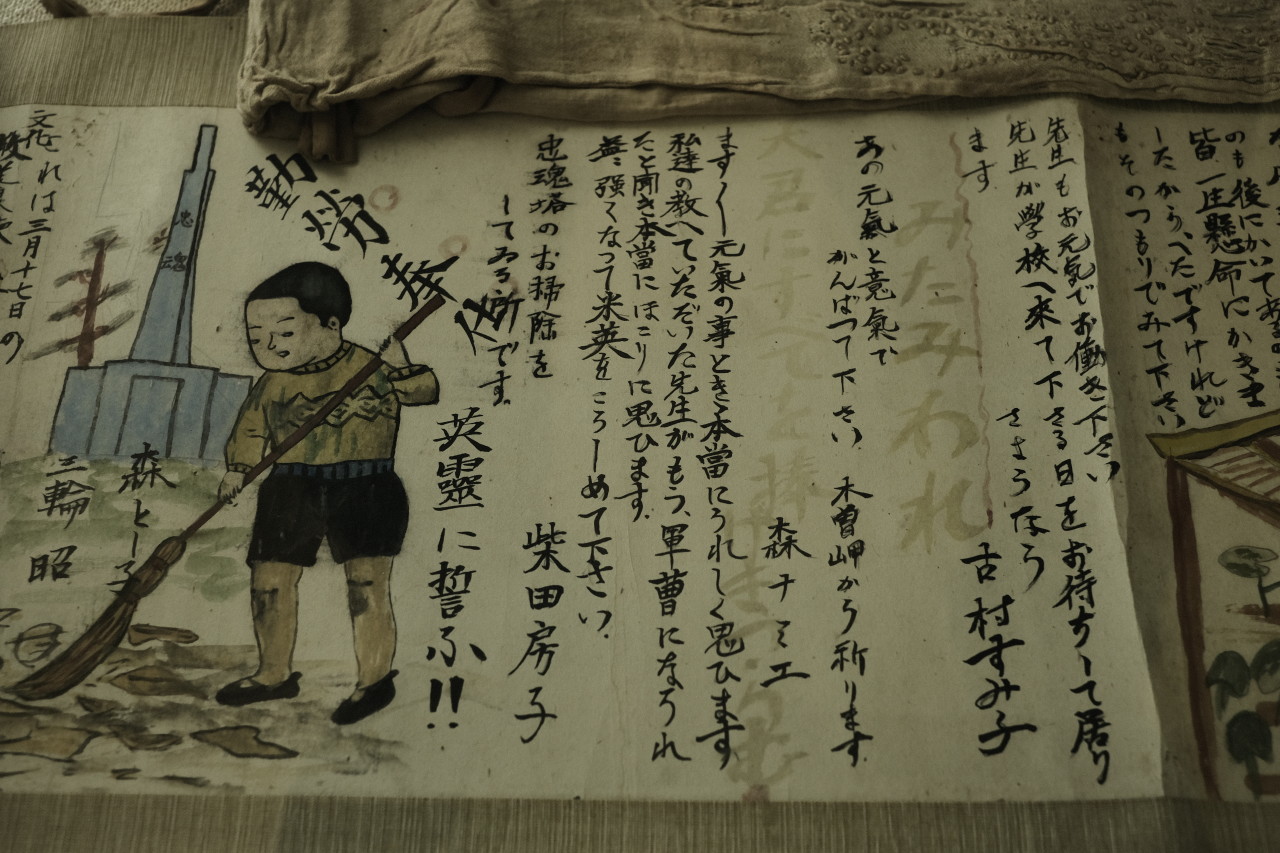 のも後にかいてあ
皆一生懸命にかきま
したから、へたですけれど
もそのつもりでみて下さい
先生もお元気でお働き下さい
先生が学校へ来て下さる日をお待ちして居り
ます
さようなら
古村すみ子
みたみわれ
あの元氣と意氣で
がんばつて下さい
木曽岬から祈ります
森ナミエ
大君にすべてを捧
ます〳〵元氣の事ときゝ本當にうれしく思ひます
私達の教へていたゞいた先生がもう、軍曹になられ
たと聞き本當にほこりに思ひます。
益々強くなつて米英をこらしめて下さい。
柴田房子
忠魂塔のお掃除を
してゐる所です。
勤労奉仕
英靈に誓ふ!!
忠魂
森とし子
三輪昭
これは三月十七日の